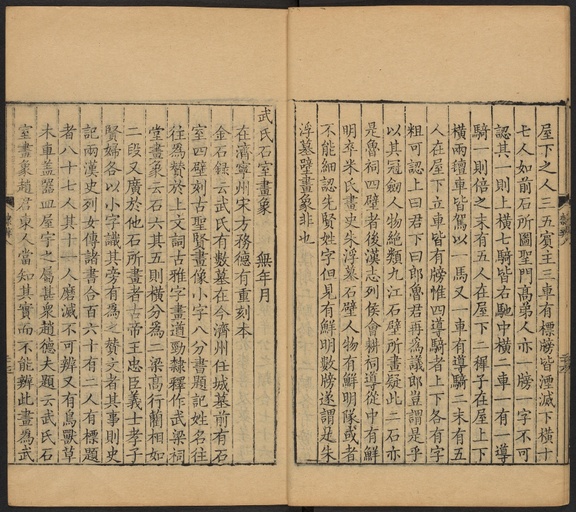 屋下之人三五賓主三車有標牓皆湮滅下橫十
七人如前石所圖聖門高弟人亦一牓一字不可
認其一則上橫七騎皆右馳中橫二車一有一導
騎一則倍之末有五人在屋下二稺子在屋上下
橫兩穜車皆駕以一馬又一車有導騎二末有五
人在屋下立車皆有牓惟四導騎者上下各有字
粗可認上曰君下曰郎魯君再爲議郎豈謂是乎
以其冠劒人物絶類九江石壁所畫疑此二石亦
是魯祠四壁者後漢志列侯會耕祠導從中有鮮
明卒米氏畫史朱浮墓石壁人物有鮮明隊或者
不能細認先賢姓字但見有鮮明數牓遂謂是朱
浮墓壁畫象非也
武氏石室畫象 無年月
在濟寧州宋方務德有重刻本
金石録云武氏有數墓在今濟州任城墓前有石
室四壁刻古聖賢畫像小字八分書題記姓名往
往爲贊於上文詞古雅字畫遒勁隷釋作武梁祠
堂畫象云石六其五則橫分爲二梁高行藺相如
二段又廣於他石所畫者古帝王忠臣義士孝子
賢婦各以小字識其旁有爲之贊文者其事則史
記兩漢史列女傳諸書合百六十有二人有標題
者八十七人其十一人磨滅不可辨又有鳥獸草
木車蓋器皿屋宇之屬甚衆趙德夫題云武氏石
室畫象趙君東人當知其實而不能辨此畫爲武